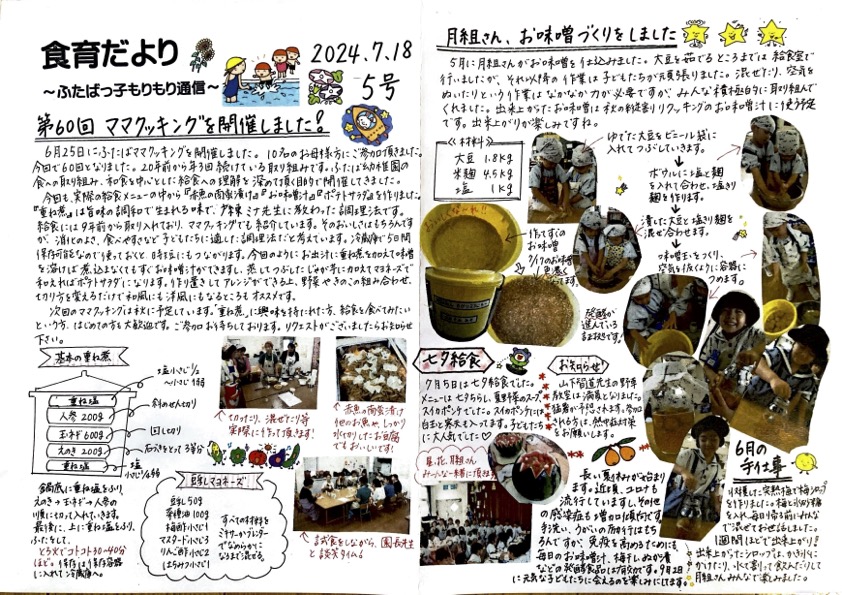 食育だより
2024.7.18
～ふたばっ子もりもり通信～
5号
第60回 ママクッキングを開催しました！
6月25日にふたばママクッキングを開催しました。10名のお母様方にご参加頂きました。
今回で60回となりました。20年前から年3回続けている取り組みです。ふたば幼稚園の
食への取り組み、和食を中心とした給食への理解を深めて頂く目的で開催してきました。
今回も、実際の給食メニューの中から『赤魚の南蛮漬け』『お味噌汁』『ポテトサラダ』を作りました。
『重ね煮』は旨味の調和で生まれる味で、ミナ先生に教わった調理法です。
給食には9年前から取り入れており、ママクッキングでも紹介しています。そのおいしさはもちろんです
が、消化のよさ、食べやすさなど子どもたちに適した調理法だと考えています。冷蔵庫で5日間
保存可能なので使っておくと、時短にもつながります。今回のようにお出汁に重ね煮を加えて味噌
を溶けば煮込まなくてもすぐお味噌汁ができますし、蒸してつぶしたじゃが芋に加えてマヨネーズで
和えればポテトサラダになります。作り置きしてアレンジができる上、野菜やきのこの組み合わせ、
切り方を変えるだけで和風にも洋風にもなるところもオススメです。
次回のママクッキングは秋に予定しています。「重ね煮」に興味を持たれた方、給食を食べてみたい
という方、はじめての方も大歓迎です。ご参加お待ちしております。リクエストがございましたらお知らせ
下さい。
基本の重ね煮
重ね塩
人参 200g
玉ネギ 600g
えのき 200g
重ね塩
塩小さじ1/2
～小さじ1弱
斜めせん切り
回し切り
石づきをとって3等分
塩
小さじ1/4弱
鍋底に重ね塩をふり、
えのき→玉ネギ→人参の
順に切って入れていきます。
最後に、上に重ね塩をふり、
ふたをして、
とろ火でコトコト30～40分
ほど。保存は保存容器
に入れて冷蔵庫へ。
豆乳マヨネーズ
豆乳50g
菜種油100g
梅酢小さじ1
マスタード小さじ3
りんご酢小さじ2
はちみつ小さじ1
すべての材料を
ミキサーかブレンダー
でなめらかに
なるまで混ぜる。
切ったり、混ぜたり等
実際に行って頂きます！
赤魚の南蛮漬け
他のお魚や、しっかり
水切りしたお豆腐
でもおいしいです！
試食をしながら、園長先生
と談笑タイム♪
月組さん、お味噌づくりをしました
5月に月組さんがお味噌を仕込みました。大豆を茹でるところまでは給食室で
行いましたが、それ以降の作業は子どもたちが頑張りました。混ぜたり、空気を
ぬいたりという作業はなかなか力が必要ですが、みんな積極的に取り組んで
くれました。出来上がったお味噌は秋の縦割りクッキングのお味噌汁に使う予定
です。出来上がりが楽しみですね。
≪材料≫
大豆 1.8kg
米麹 4.5kg
塩 1kg
ゆでた大豆をビニール袋に
入れてつぶしていきます。
ボウルに塩と麹
を入れ合わせ、塩切り
麹を作ります。
潰した大豆と塩切り麹を
混ぜ合わせます。
味噌玉をつくり、
空気を抜くように容器に
つめます。
おいしくなぁれ!!
作ってすぐの
お味噌
7/17のお味噌
色濃く
なってます！
発酵が
進んでいる
証拠です！
七夕給食
7月5日は七夕給食でした。
メニューは七夕ちらし、夏野菜のスープ、
スイカポンチでした。スイカポンチには
白玉と寒天も入ってます。子どもたち
に大人気でした♡
星、花、月組さん
みーんな一緒に頂きます
お知らせ！
山下 先生の野草
教室は満員となりました。
猛暑が予想されます。参加
される方は、熱中症対策
をお願いします。
長い夏休みが始まり
ます。近頃、コロナも
流行していますし、その他
の感染症も増加傾向です。
手洗い、うがいの励行はもち
ろんですが、免疫を高めるためにも、
毎日のお味噌汁、梅干し、ぬか漬
などの発酵食品は有効です。9月2日
に元気な子どもたちに会えるのを楽しみにしてます。
6月の
手仕事
収穫した完熟梅で梅シロップ
を作りました。梅と氷砂糖
を入れ、毎日帰る前にみんな
で混ぜてお世話しました。
1週間ほどで出来上がり！
出来上がったシロップは、かき氷に
かけたり、水で割って飲んだりして
月組さんみんなで楽しみました。